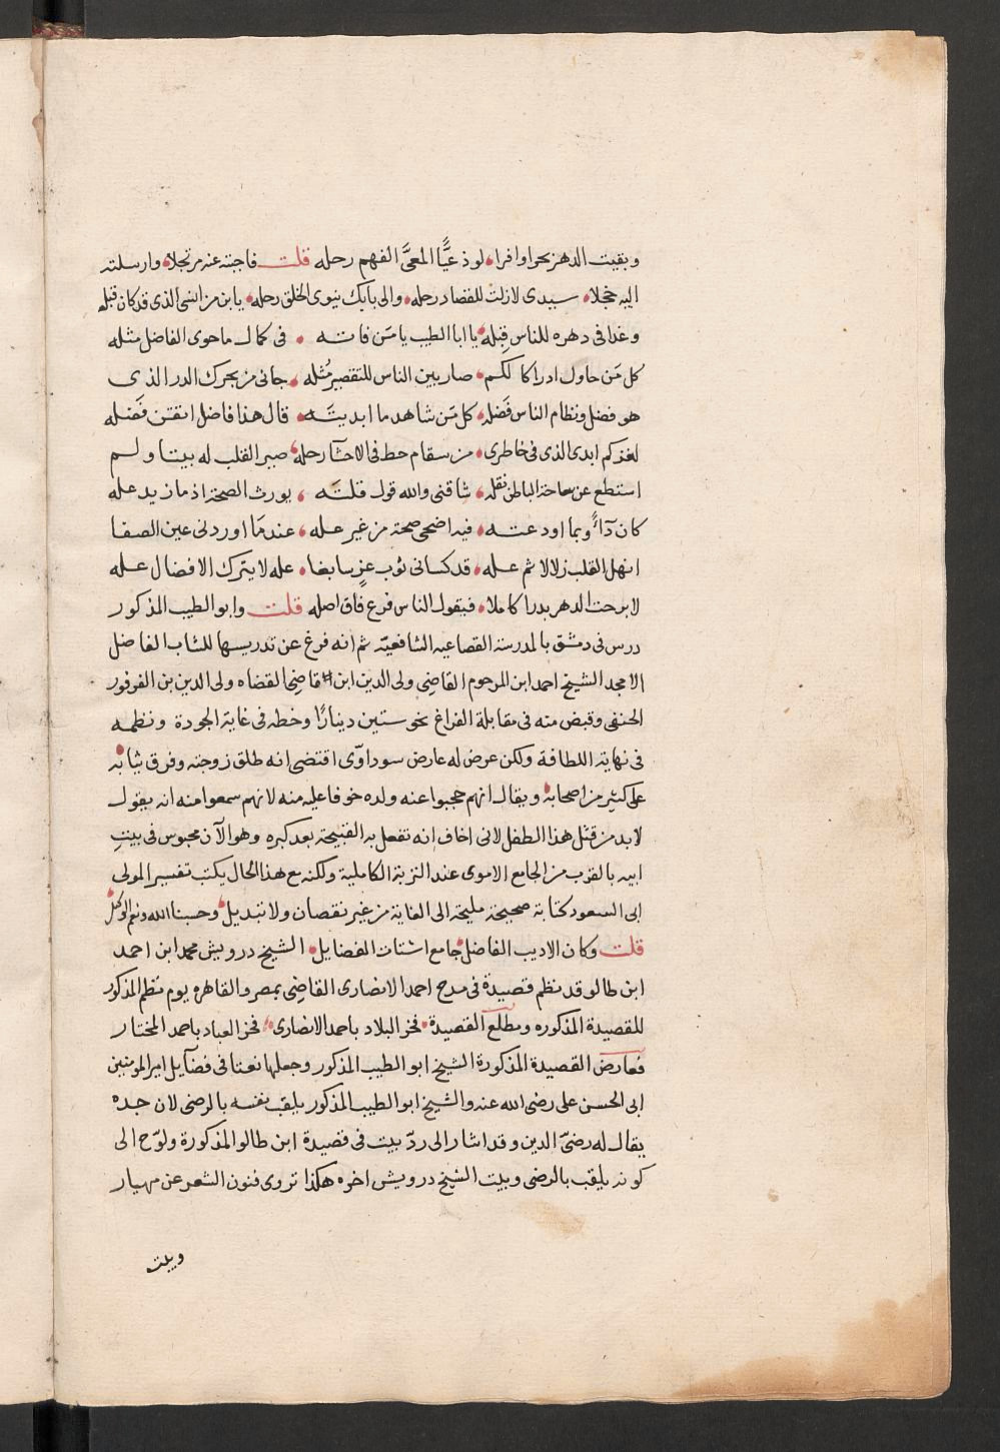 وبقيت الدهر بحرا وافرا لوذعيًّا المعيَّ الفهم رحله قلت فاجبته عنه مرتجلا وارسلته
اليه خجلا سيدى لازلت للقصاد رحله والى بابك ينوى الخلق رحله يا بن من انشى الذى قد كان قبله
وغدا فى دهره للناس قِبله يا ابا الطيب يا مَن فاته فى كمال ما حوى الفاضل مثله
كل مَن حاول ادراكا لكم صار بين الناس للتقصير مُثله جانى من بحرك الدر الذى
هو فضل ونظام الناس فَضله كل مَن شاهد ما ابديتَه قال هذا فاضل اتقن فَضله
لغزكم ابدى الذى فى خاطرى من سقام حط فى الاحشآ رحله صير القلب له بيتا ولم
استطع عن ساحة الباطن نقله شاقنى والله قول قلتَه يورث الصحة اذ ما زيد عله
كان دآءً وبما اودعته فيه اضحى صحة من غير عله عندمَا اوردنى عين الصفا
انهل القلب زلالا ثم عله قد كسانى ثوب عزٍ سابغا عله لا يترك الافضال عله
لا برحت الدهر بدرا كاملا فيقول الناس فرع فاق اصله قلت وابو الطيب المذكور
درس فى دمشق بالمدرسة القصاعيه الشافعيّه ثم انه فرغ عن تدريسها للشاب الفاضل
الامجد الشيخ احمد ابن المرحوم القاضِى ولى الدين ابن قاضِى القضاه ولى الدين بن الفرفور
الحنفى وقبض منه فى مقابلة الفراغ نحو ستين دينارًا وخطه فى غاية الجودة ونظمه
فى نهاية اللطافة ولكن عرض له عارض سوداوّى اقتضى انه طلق زوجته وفرق ثيابه
على كثير من اصحابه ويقال انهم حجبوا عنه ولده خوفا عليه منه لانهم سمعوا منه انه يقول
لابد من قتل هذا الطفل لانى اخاف انه تفعل به القبيحة بعد كبره وهو الآن محبوس فى بيتِ
ابيه بالقرب من الجامع الاموى عند التربة الكاملية ولكنه مع هذا الحال يكتب تفسير المولى
ابى السعود كتابة صحيحة مليحة الى الغاية من غير نقصان ولا تبديل وحسبنا الله ونعم الوكيل
قلت وكان الاديب الفاضل جامع اشتات الفضايل الشيخ درويش محمد ابن احمد
ابن طالو قد نظم قصيدة فى مدح احمد الانصارى القاضِى بمصر والقاهره يوم نظم المذكور
للقصيدة المذكوره ومطلع القصيدة فخر البلاد باحمد الانصارى فخر العباد باحمد المختار
فعارض القصيدة المذكورة الشيخ ابو الطيب المذكور وجعلها نعتا فى فضآيل امير المومنين
ابى الحسن على رضى الله عنه والشيخ ابو الطيب المذكور يلقب نفسه بالرضى لان جده
يقال له رضىّ الدين وقد اشار الى ردّ بيت فى قصيدة ابن طالو المذكورة ولوّح الى
كونه يلقب بالرضى وبيت الشيخ درويش اخره هكذا تروى فنون الشعر عن مهيار
وبيت